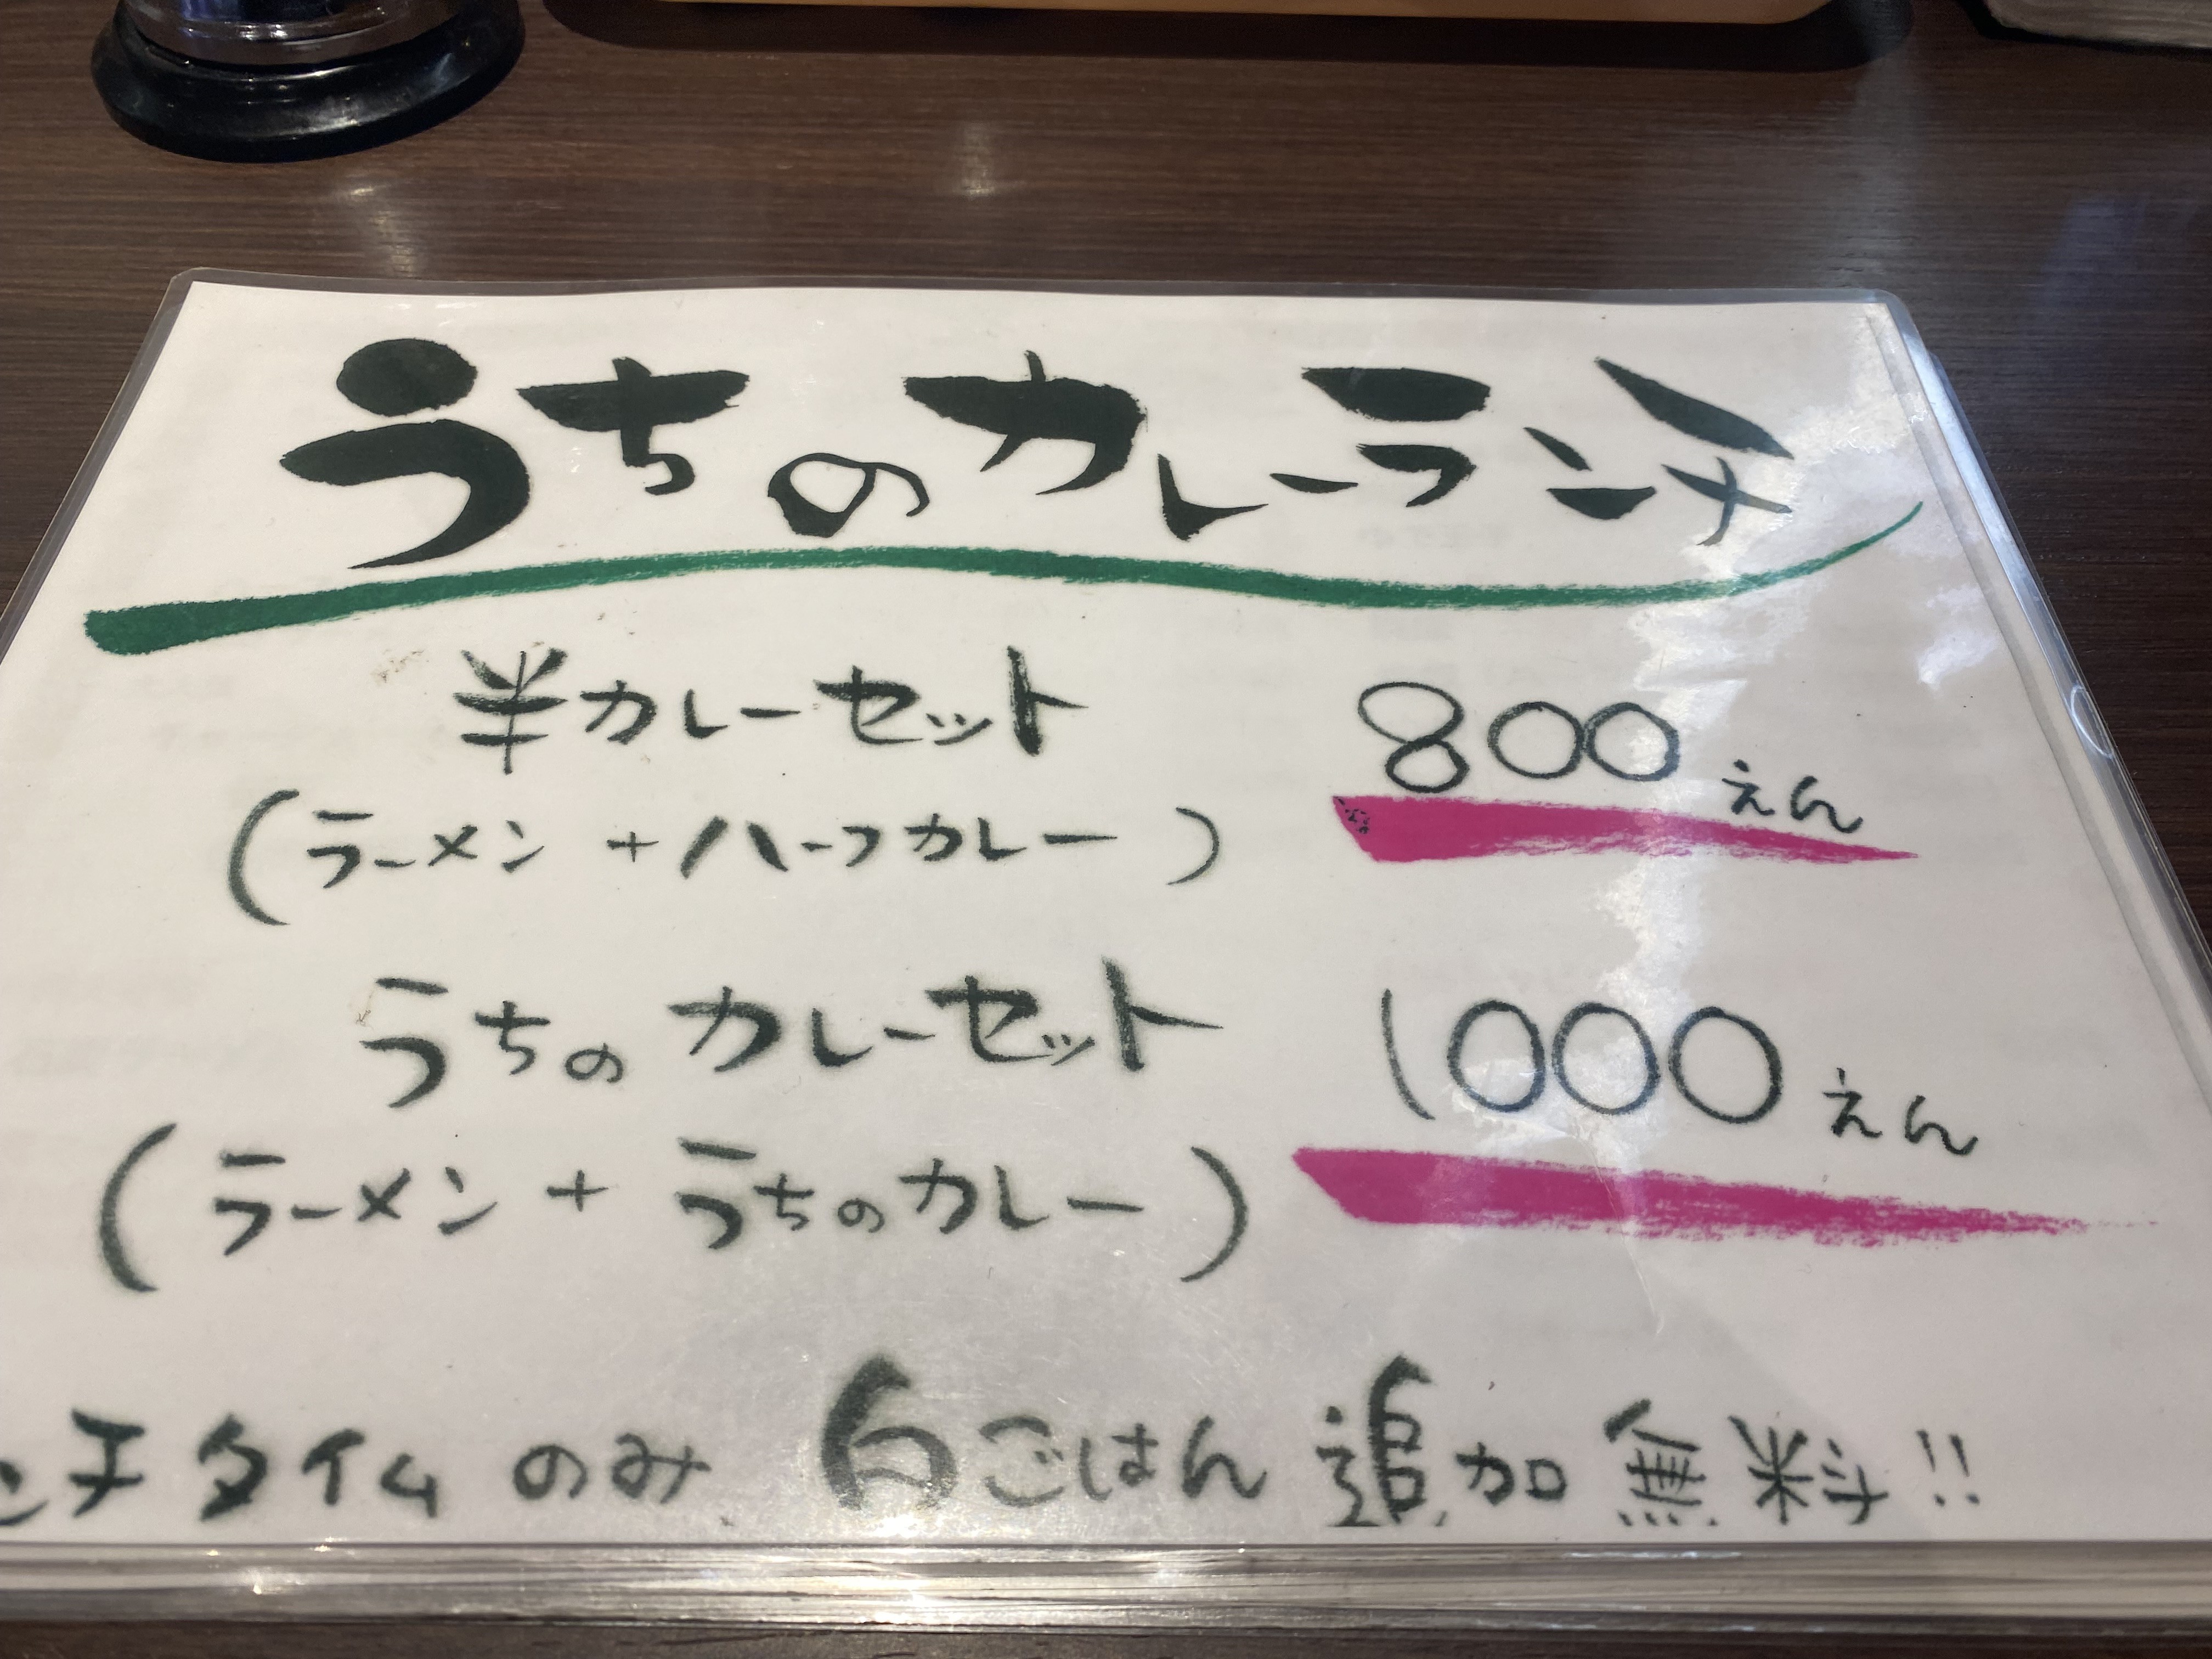 うちのカレーランチ
半カレーセット 800えん
(ラーメン+ハーフカレー)
うちのカレーセット 1000えん
(ラーメン+うちのカレー)
ンチタイムのみ 白ごはん 追加無料!!